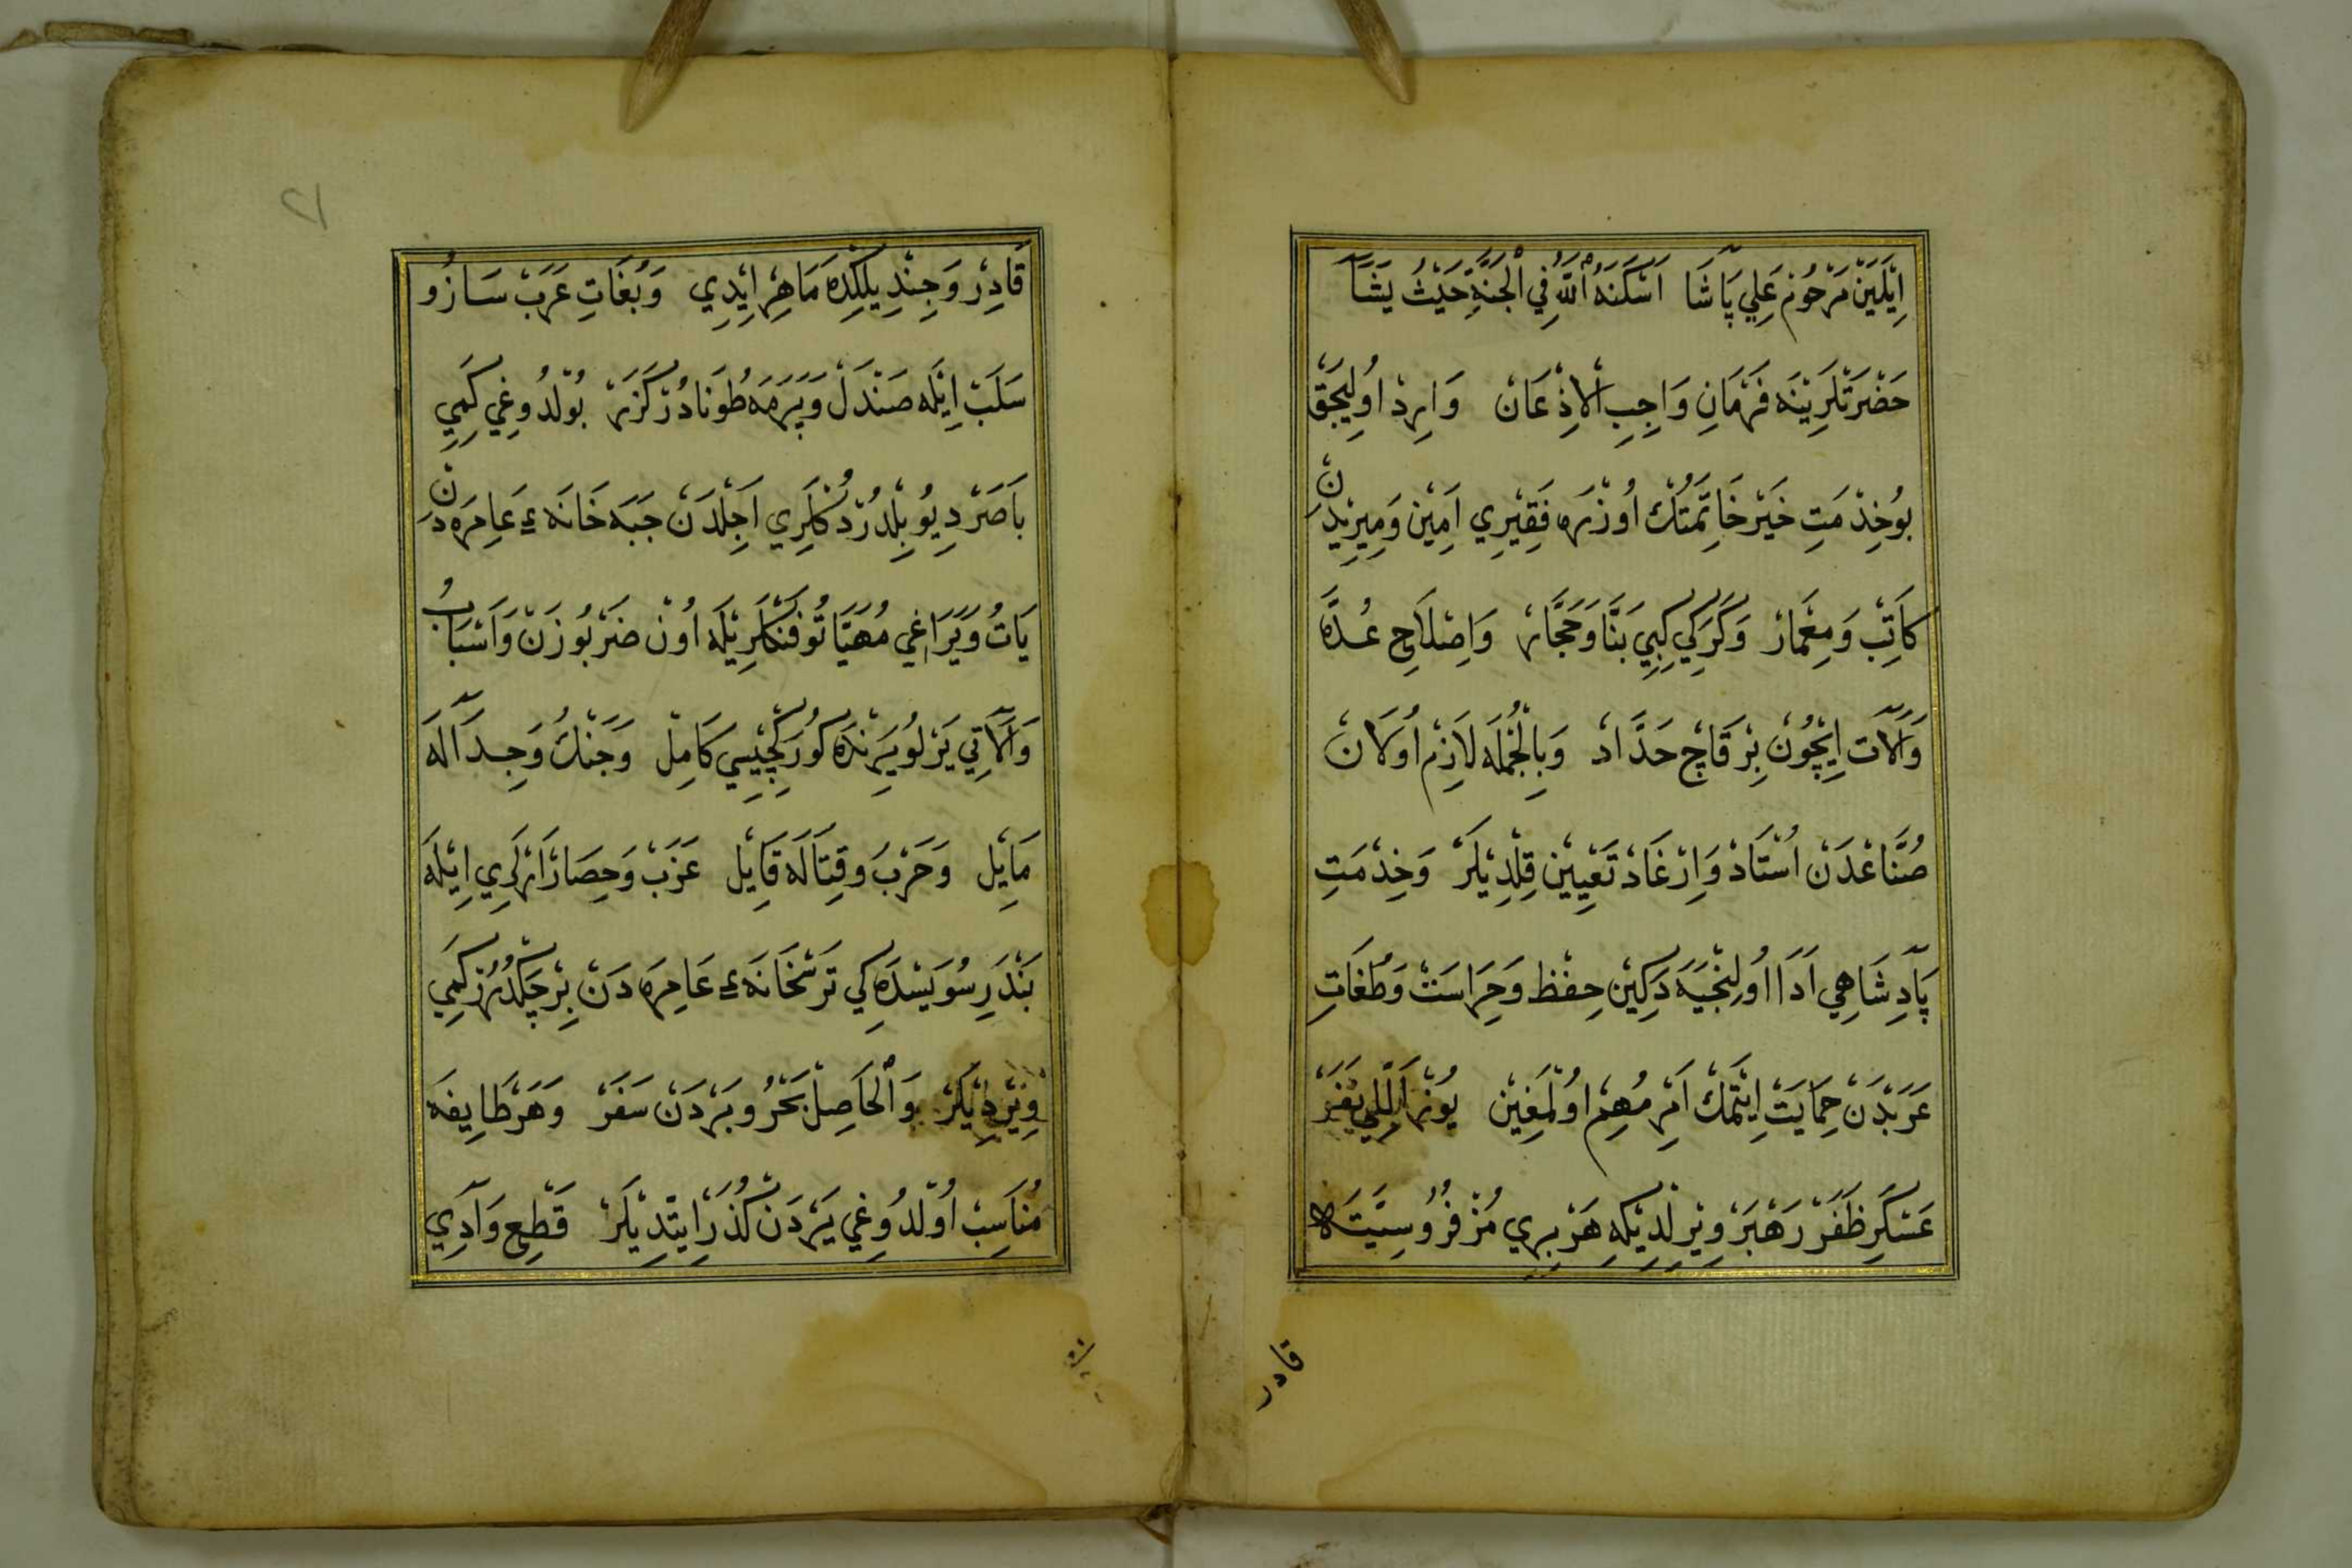 اِيْلَيَنْ مَرْحُومْ عَلِي پَاشَا اَسْكَنَهُ اللّٰهُ فِي الْجَنَّةِ حَيْثُ يَشَآ
حَضْرَتْلَرِينَه فَرْمَانِ وَاجِبِ الْاِذْعَانْ وَارِدْ اُولِيجَقْ
بُوخِذْمَتِ خَيْرْخَاتِمَتُكْ اُوزْرَه فَقِيرِي اَمِينْ وَمِيرِيدَنْ
كَاتِبْ وَمِعْمَارْ وَكَرَكِي كِبِي بَنَّا وَحَجَّارْ وَاِصْلَاحِ عُدَّه
وَاٰلَاتْ اِيچُونْ بِرْ قَاچْ حَدَّادْ وَبِالْجُمْلَه لَازِمْ اُولَانْ
صُنَّاعْدَنْ اُسْتَادْ وَاِرْغَادْ تَعْيِينْ قِلْدِيلَرْ وَخِذْمَتِ
پَادِشَاهِي اَدَا اُولِنْجَيَه دَكِينْ حِفْظْ وَحِرَاسَتْ وَطُغَاتِ
عَرَبْدَنْ حِمَايَتْ اِيتْمَكْ اَمْرِ مُهِمْ اُولْمَغِينْ يُوزْ اَللِّي نَفَرْ
عَسْكَرِ ظَفَرْ رَهْبَرْ وِيرِلْدِيكِه هَرْ بِرِي مُزْفِرُوسِيَّتَه
قادر
قَادِرْ وَجِنْدِيلِكِدَه مَاهِرْ اِيدِي وَبُغَاتِ عَرَبْ سَازُو
سَلَبْ اِيلَه صَنْدَلْ وَپَرْمَه طُونَادُرْ كَزَرْ بُولْدُوغِي كَمِي
بَاصَرْ دِيُو بِلْدُرْدُكْلَرِي اَجِلْدَنْ جَبَه خَانَهٔ عَامِرَه دَنْ
يَاتْ وَيَرَاغِي مُهَيَّا تُوفَنْكْلَرِيلَه اُونْ ضَرْبُوزَنْ وَاَسْبَابُ
وَاٰلَاتِي يَرْلُويَرِنْدَه كُورَكْچِيسِي كَامِلْ وَجَنْكْ وَجِدَالَه
مَايِلْ وَحَرْبْ وَقِتَالَه قَايِلْ عَزَبْ وَحِصَارْ اَرْلَرِي اِيلَه
بَنْدَرِ سُوَيْسْدَه كِي تَرْسْخَانَهٔ عَامِرَه دَنْ بِرْ چَكْدُرُرْ كَمِي
وِيرْدِيلَرْ وَالْحَاصِلْ بَحْرُ وبَرْدَنْ سَفَرْ وَهَرْ طَايِفَه
مُنَاسِبْ اُولْدُوغِي يَرْدَنْ كُذَرْ اِيتْدِيلَرْ قَطْعِ وَادِي
٢١